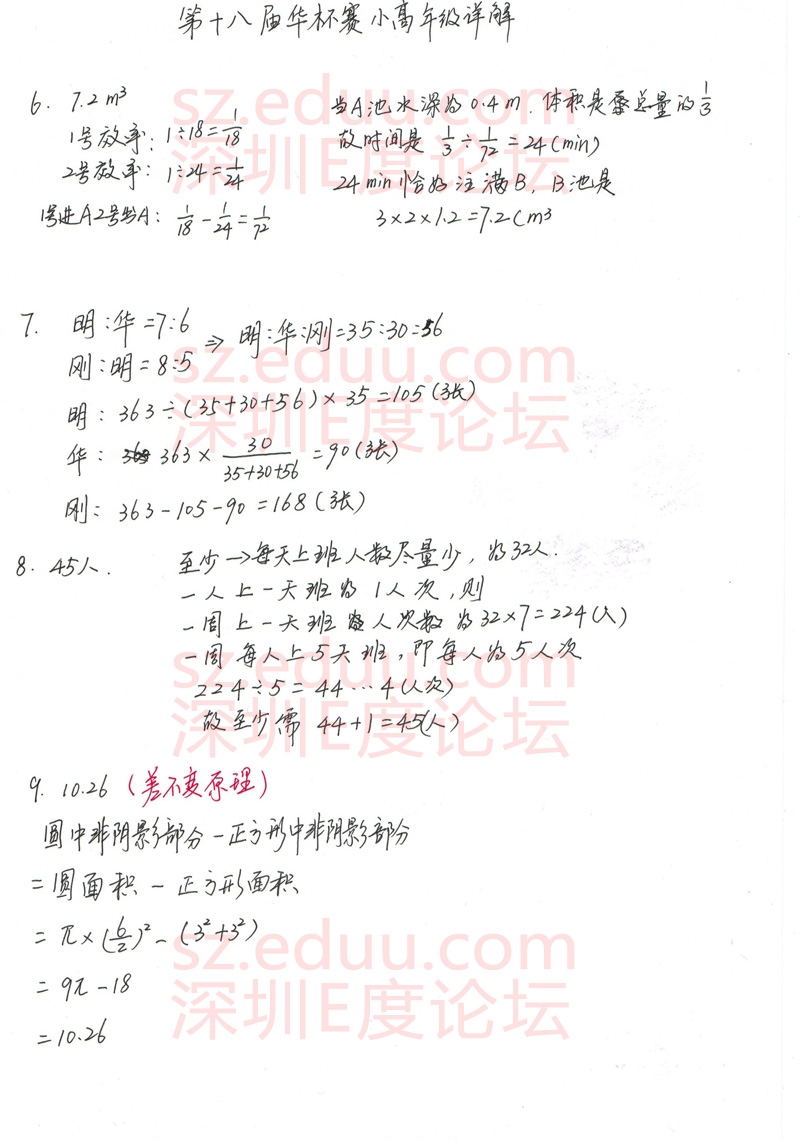 第十八届华杯赛小高年级详解
6. 7.2m³
1号效率: 1÷18=1/18
2号效率: 1÷24=1/24
1号进A2号出A: 1/18-1/24=1/72
当A池水深为0.4m,体积是总量的1/3
故时间是 1/3÷1/72=24(min)
24min恰好注满B,B池是
3×2×1.2=7.2(m³
7. 明:华=7:6
刚:明=8:5
⇒ 明:华:刚=35:30:56
明: 363÷(35+30+56)×35=105(张)
华: 363×30/(35+30+56)=90(张)
刚: 363-105-90=168(张)
8. 45人.
至少→每天上班人数尽量少,为32人.
一人上一天班为1人次,则
一周上一天班人次数为32×7=224(人)
一周每人上5天班,即每人为5人次
224÷5=44…4(人次)
故至少需 44+1=45(人)
9. 10.26 (差不变原理)
圆中非阴影部分-正方形中非阴影部分
=圆面积-正方形面积
=π×(6/2)²-(3²+3²)
=9π-18
=10.26
sz.eduu.com
深圳E度论坛
sz.eduu.com
深圳E度论坛
sz.eduu.com
深圳E度论坛
sz.eduu.com
深圳E度论坛